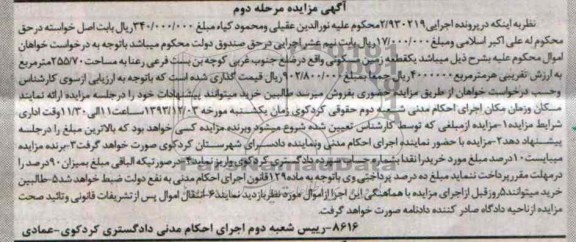 آگهی مزایده مرحله دوم
نظر به اینکه در پرونده اجرایی ۲/۹۳۰۲۱۹ محکوم علیه نورالدین عقیلی ومحمود کیاه مبلغ ۳۴۰/۰۰۰/۰۰۰ ریال بابت اصل خواسته در حق
محکوم له علی اکبر اسلامی ومبلغ ۱۷/۰۰۰/۰۰۰ ریال بابت نیم عشر اجرایی در حق صندوق دولت محکوم میباشد باتوجه به درخواست خواهان
اموال محکوم علیه بشرح ذیل میباشد یکقطعه زمین مسکونی واقع در ضلع جنوب غربی کوچه بن بست فرعی رعنا به مساحت ۲۵۵/۷۰ مترمربع
به ارزش تقریبی هر مترمربع ۴۰۰۰۰۰۰ ریال جمعا بمبلغ ۹۰۲/۸۰۰/۰۰۰ ریال قیمت گذاری شده است که باتوجه به ارزیابی ازسوی کارشناس
وحسب درخواست خواهان از طریق مزایده حضوری بفروش میرسد طالبین خرید میتوانند پیشنهادات خود را درجلسه مزایده ارائه نمایند
مکان وزمان مکان اجرای احکام مدنی شعبه دوم حقوقی کردکوی زمان یکشنبه مورخه ۱۳۹۳/۱۲/۰۳ ساعت ۱۱ الی ۱۱/۳۰ وقت اداری
شرایط مزایده ۱-مزایده ازمبلغی که توسط کارشناس تعیین شده شروع میشود وبرنده مزایده کسی خواهد بود که بالاترین مبلغ را درجلسه
پیشنهاد دهد ۲-مزایده با حضور نماینده اجرای احکام مدنی ونماینده دادسرای شهرستان کردکوی صورت خواهد گرفت ۳-برنده مزایده
میبایست ۱۰ درصد مبلغ مورد خرید را نقدا بشماره حساب سپرده دادگستری کردکوی واریز نماید ۴-درصورتیکه الباقی مبلغ بمیزان ۹۰ درصد را
درمهلت مقرر پرداخت ننماید مبلغ ده درصد پرداختی وی باتوجه به ماده ۱۲۹ قانون اجرای احکام مدنی به نفع دولت ضبط خواهد شد ۵-طالبین
خرید میتوانند ۵ روز قبل ازاجرای مزایده با هماهنگی این اجرا ازاموال موردنظر بازدید نمایند ۶-انتقال اموال پس از تشریفات قانونی وتائید صحت
مزایده ازناحیه دادگاه صادر کننده دادنامه صورت خواهد گرفت.
۸۶۱۶-رییس شعبه دوم اجرای احکام مدنی دادگستری کردکوی-عمادی